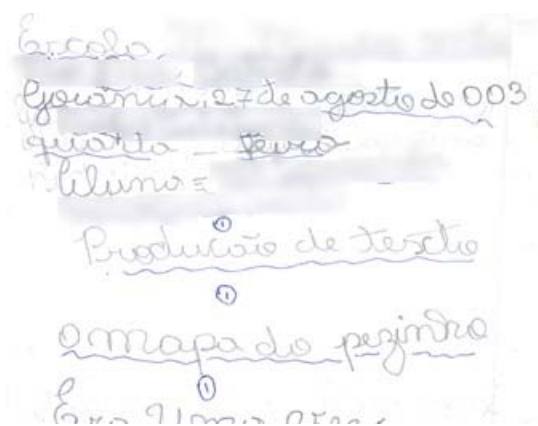 Escola
Goiânia, 27 de agosto de 003
quarta - feira
Aluno =
①
Produção de texto
①
O mapa do pezinho
①
Era Uma